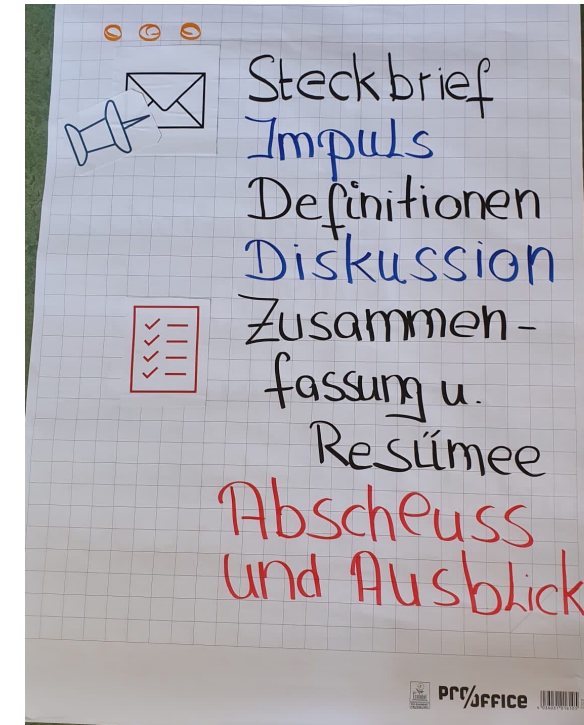 Steckbrief
Impuls
Definitionen
Diskussion
Zusammen-
fassung u.
Resümee
Abschluss
und Ausblick
PRO/OFFICE